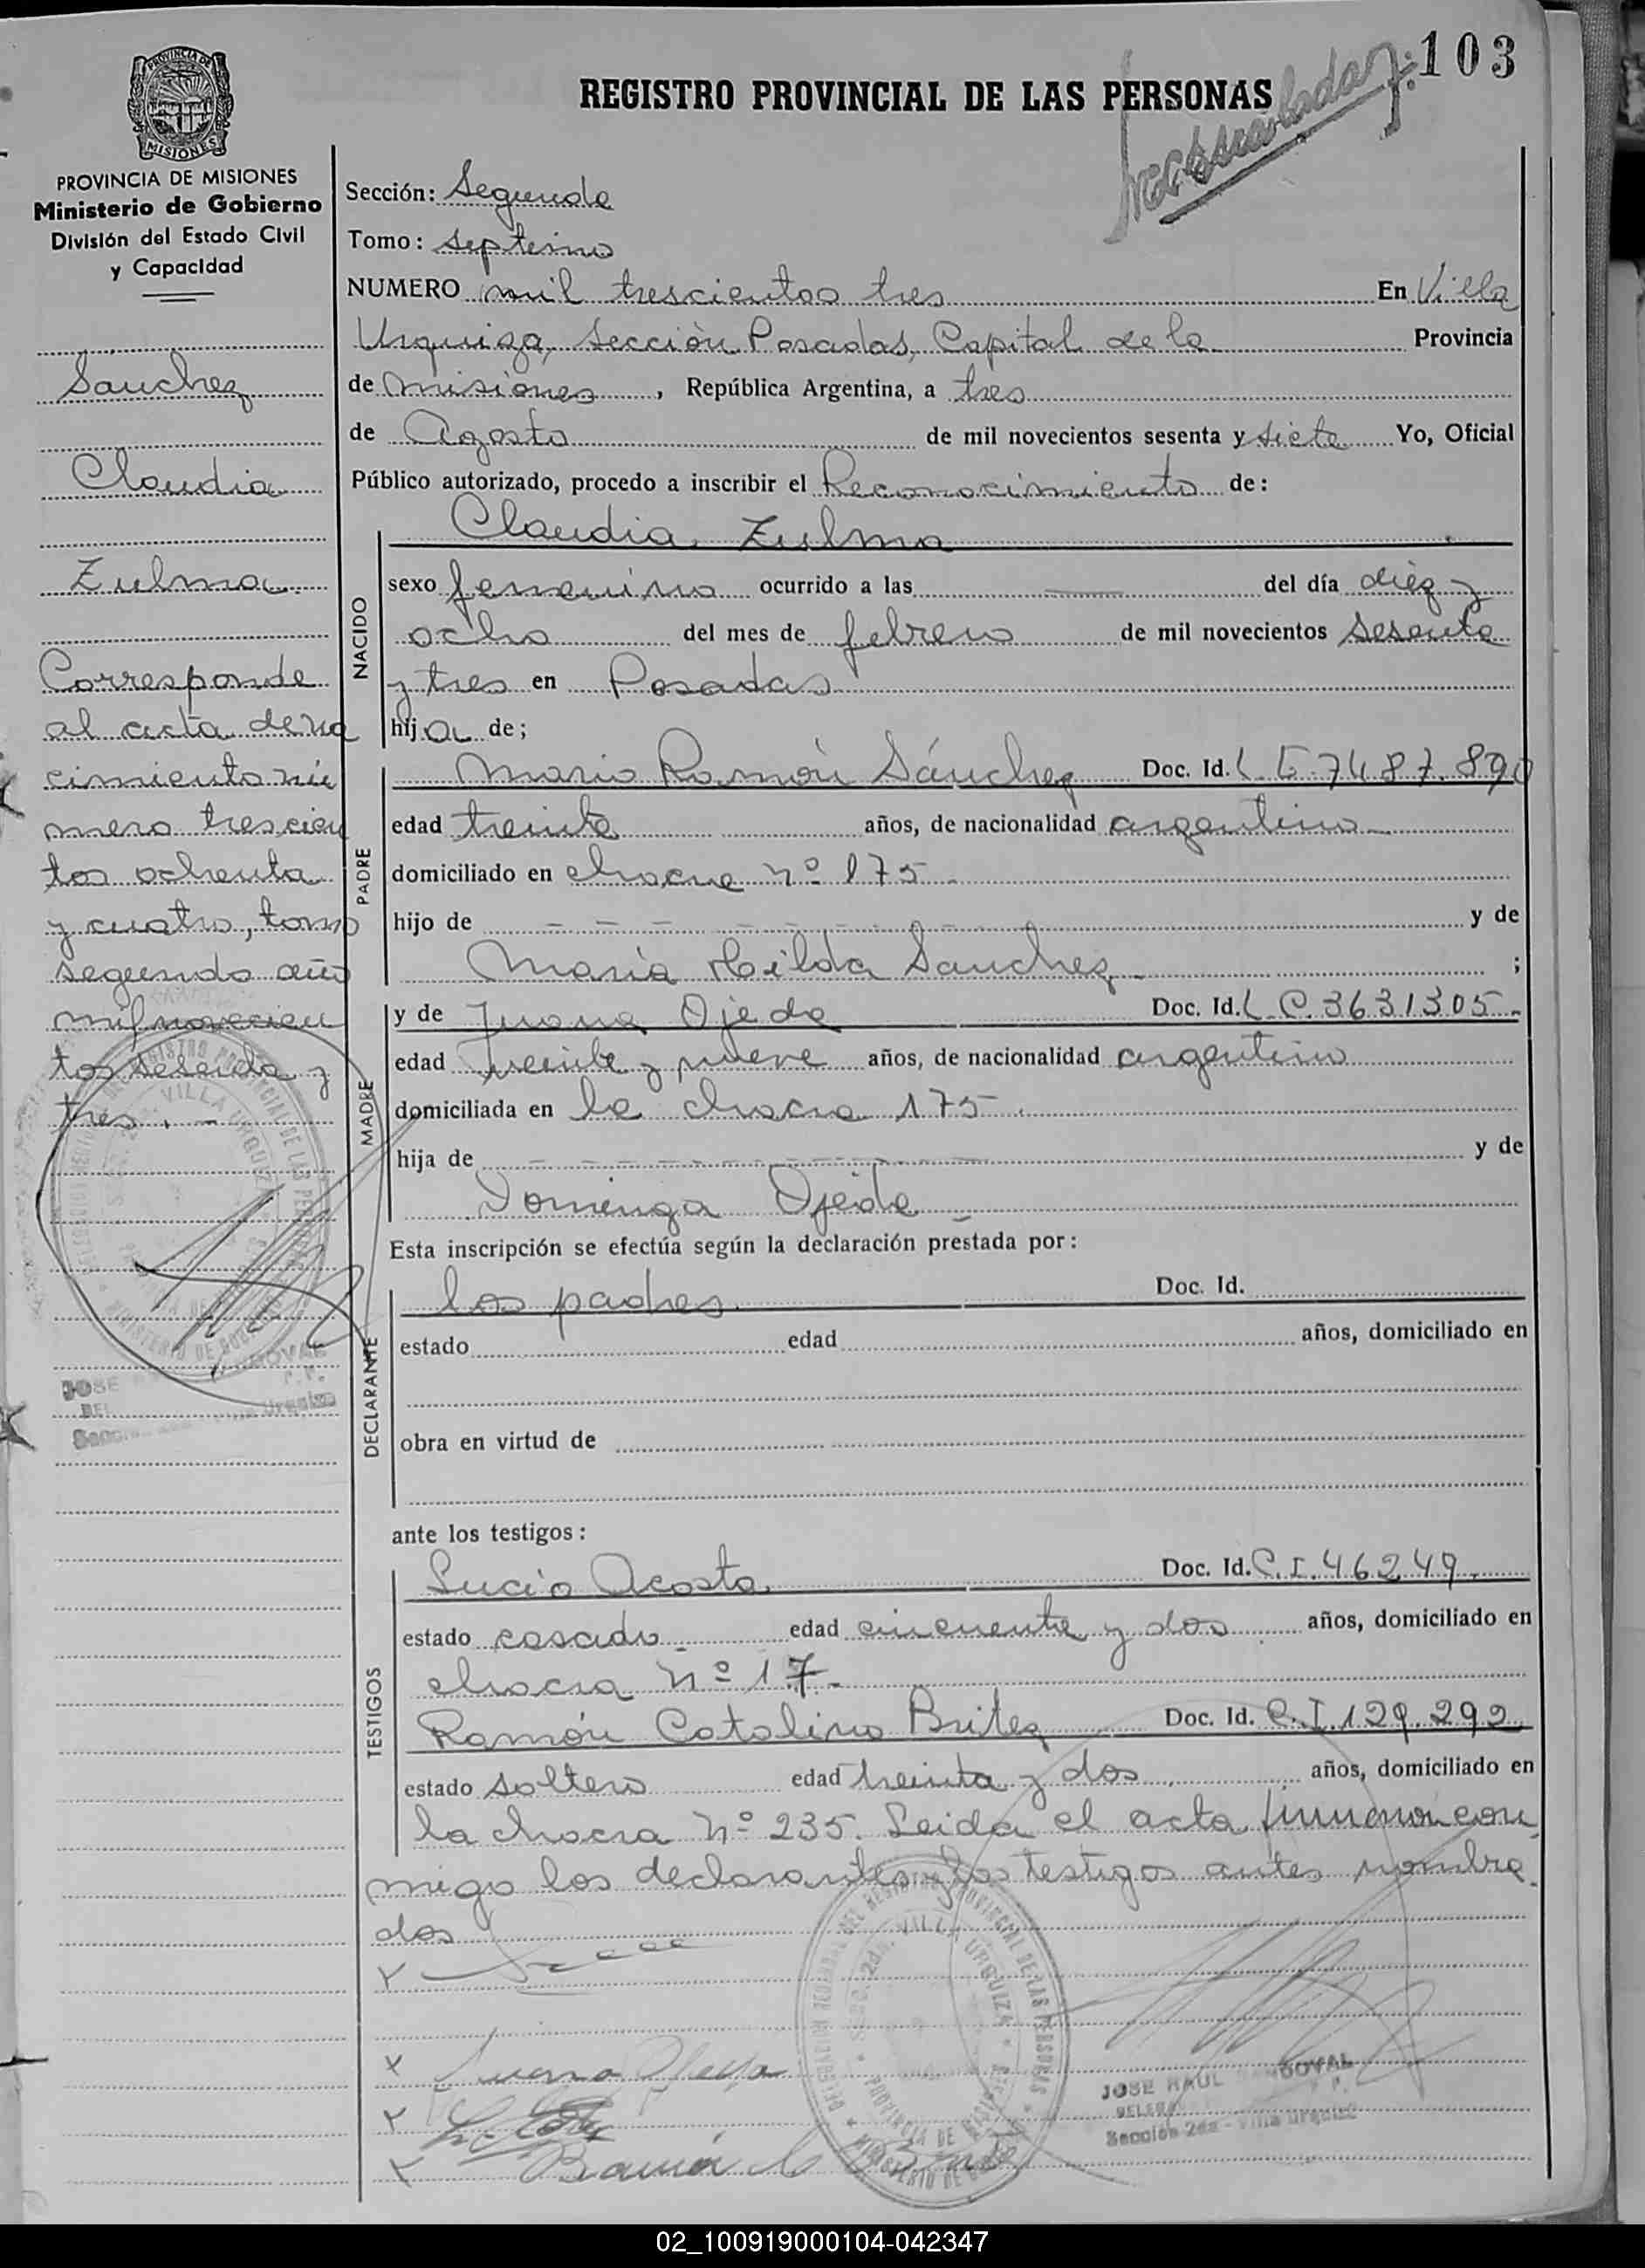 103
REGISTRO PROVINCIAL DE LAS PERSONAS
PROVINCIA DE MISIONES
PROVINCIA DE MISIONES
Ministerio de Gobierno
División del Estado Civil
y Capacidad
Sánchez
Claudia
Zulma
Corresponde
al acta de na
cimiento nú
mero trescien
tos ochenta
y cuatro, tomo
segundo año
mil novecien
tos sesenta y
tres . -
Sección: Segunda
Tomo: Septimo
NUMERO mil trescientos tres En Villa
Urquiza, Sección Posadas, Capital de la Provincia
de Misiones, República Argentina, a tres
de Agosto de mil novecientos sesenta y siete Yo, Oficial
Público autorizado, procedo a inscribir el Reconocimiento de:
NACIDO
Claudia Zulma
sexo femenino ocurrido a las del día diez y
ocho del mes de febrero de mil novecientos sesenta
y tres en Posadas
hija de;
PADRE
Mario Ramón Sánchez Doc. Id. L.E. 7487.890
edad treinta años, de nacionalidad argentino
domiciliado en chacra nº 175 -
hijo de - - - y de
María Hilda Sanchez - ;
MADRE
y de Juana Ojeda Doc. Id. L.C. 3631305 -
edad treinta y nueve años, de nacionalidad argentino
domiciliada en la chacra 175 .
hija de y de
Dominga Ojeda -
Esta inscripción se efectúa según la declaración prestada por:
DECLARANTE
los padres Doc. Id.
estado edad años, domiciliado en
obra en virtud de
ante los testigos:
TESTIGOS
Lucio Acosta Doc. Id. C.I. 46249.
estado casado edad cincuenta y dos años, domiciliado en
chacra nº 17 -
Ramón Catalino Britez Doc. Id. C.I. 129.292
estado soltero edad treinta y dos años, domiciliado en
la chacra nº 235. Leida el acta firman con
migo los declarantes y los testigos antes nombra
dos
Juana Ojeda
Ramón C Britez
VILLA URQUIZA
JOSE RAUL SANDOVAL
Sección 2da - Villa Urquiza
02_100919000104-042347